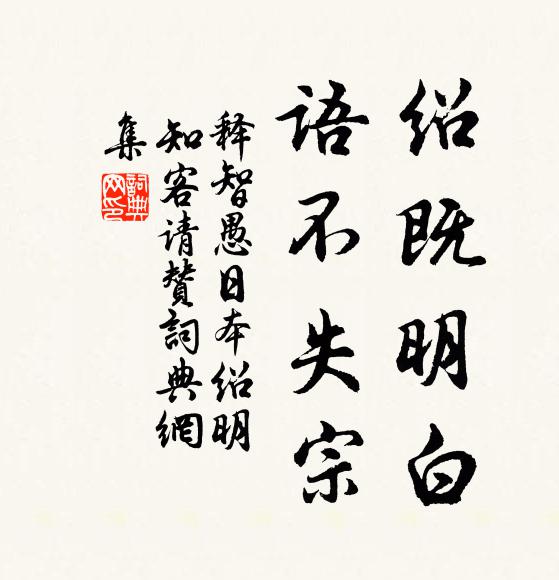 绍既明白
語不失宗
释智愚日本绍明
知客请賛詞典網
集
詞典
网印